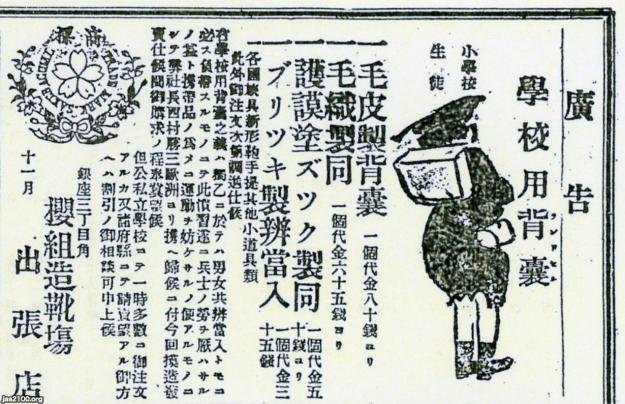 廣告
學校用背嚢
ランドセル
小學校
生徒
一毛皮製背嚢 一個代金八十錢ヨリ
一毛織製同 一個代金六十五錢ヨリ
一護謨塗ズック製同 一個代金五十錢ヨリ
一ブリツキ製辨當入 一個代金三十五錢
各國嚢具新形鞄手提其他小道具類
此外御注文次第調進仕候
右學校用背嚢之義ハ獨乙ニ於テハ男女共辨當入トモニ
必ス負帶スルモノニテ此慣習遂ニ兵士ノ勞ヲ厭ハサル
シテ弊社長西村勝三歐洲ヨリ携ヘ歸候ニ付今回摸造發
賣仕候間御購求ノ程奉冀望候
但公私立學校ニテ一時多數ニ御注文
アルカ又諸府縣ニテ請賣望アル御方
ヘハ割引ノ御相談可申上候
商標
TRADE MARK
十一月
銀座三丁目角
櫻組造靴塲
出張店
Jaa2100.org